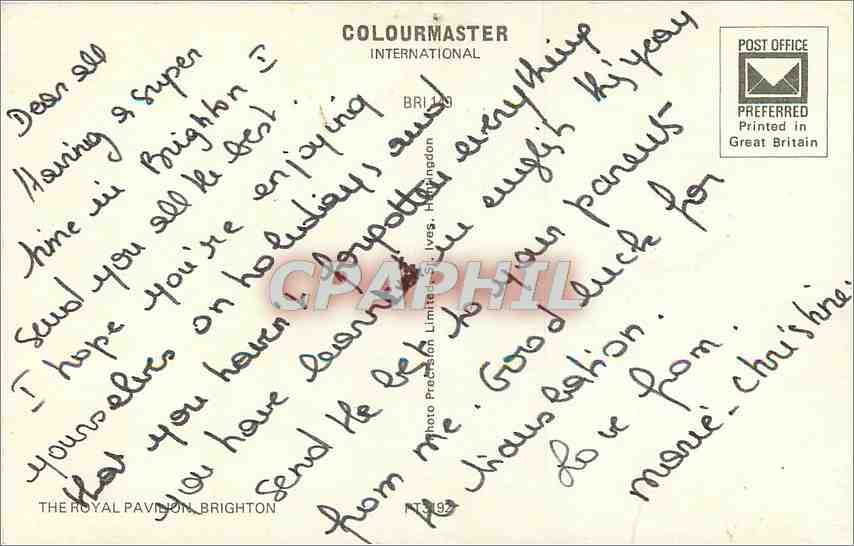 COLOURMASTER
INTERNATIONAL
BRI 149
POST OFFICE
PREFERRED
Printed in
Great Britain
Dear all
Having a super
time in Brighton I
send you all the best.
I hope you're enjoying
yourselves on holidays and
that you haven't forgotten everything
you have learnt in english this year
send the best to your parents
from me. Good luck for
the translation.
Love from.
Marie-Christine.
Photo Precision Limited, St. Ives, Huntingdon
CPAPHIL
THE ROYAL PAVILION, BRIGHTON
PT3192